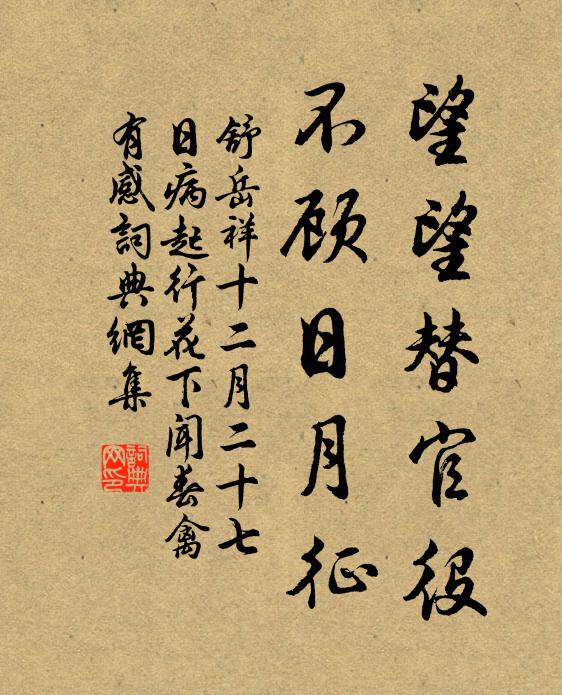 望望替官役
不顾日月征
舒岳祥十二月二十七
日病起行花下闻春禽
有感詞典網集
詞典
网印